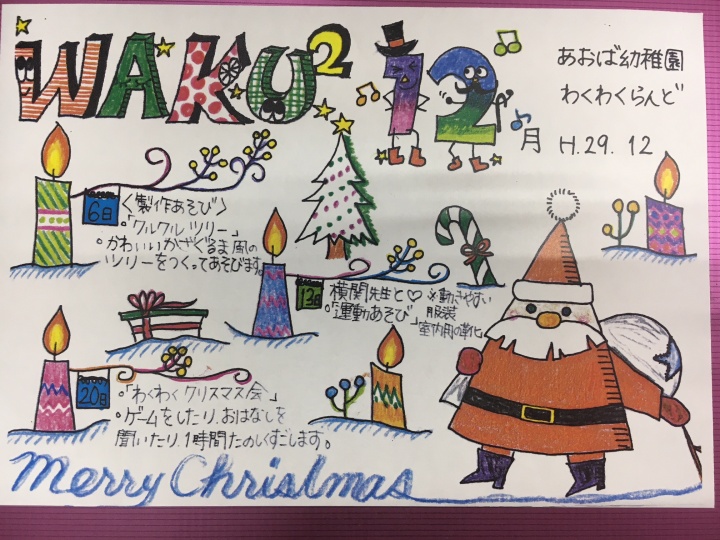 WAKU²
12月
あおば幼稚園
わくわくらんど
H.29.12
6日
〈製作あそび〉
「クルクルツリー」
かわいいかざぐるま風の
ツリーをつくってあそびます。
13日
横関先生と♡
「運動あそび」
※動きやすい
服装
室内用の靴
20日
「わくわくクリスマス会」
ゲームをしたり、おはなしを
聞いたり、1時間たのしくすごします。
Merry Christmas